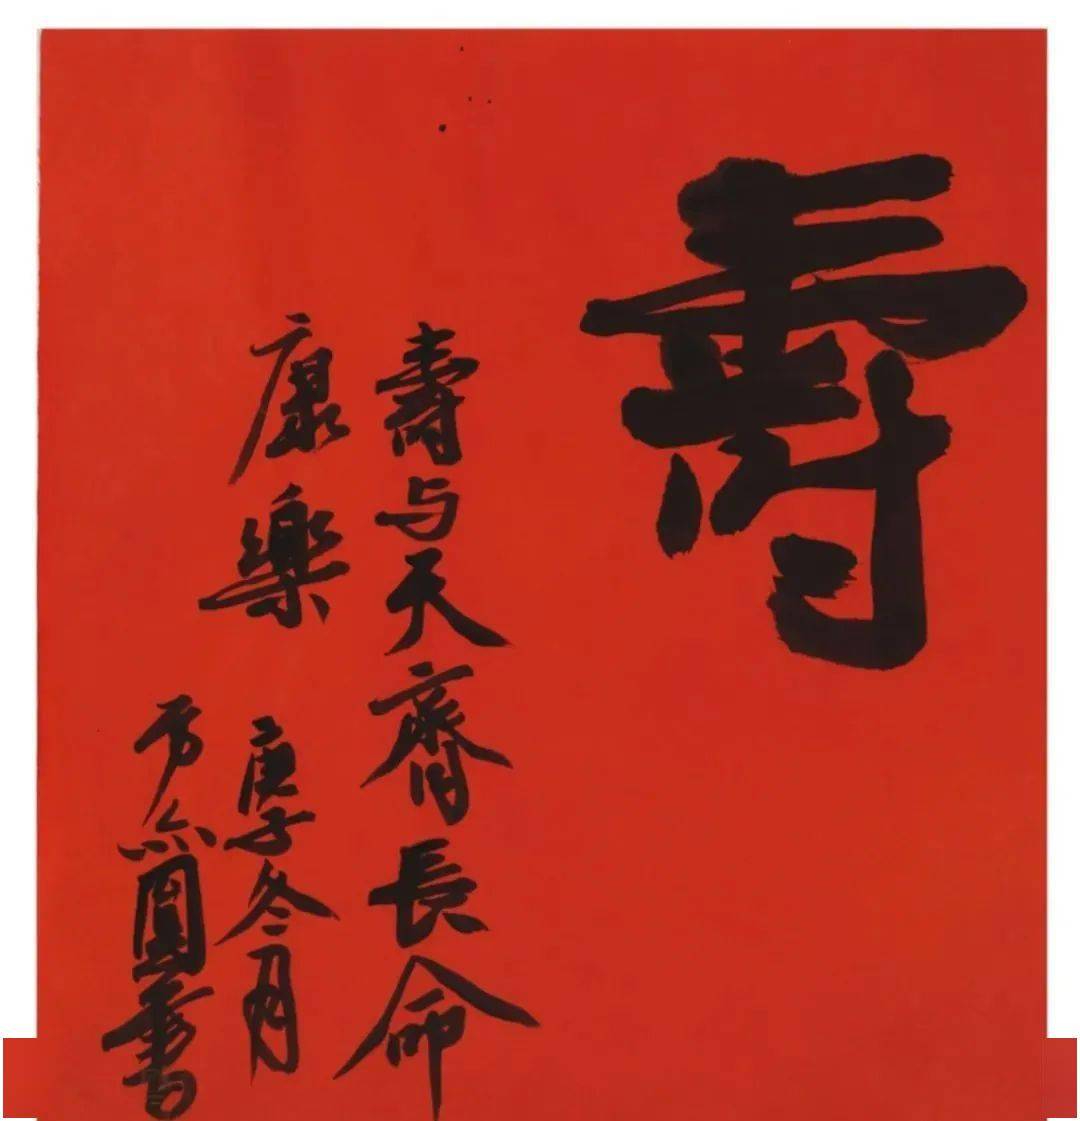 壽
壽与天齊長命
康樂
庚子冬月
方亦圓書